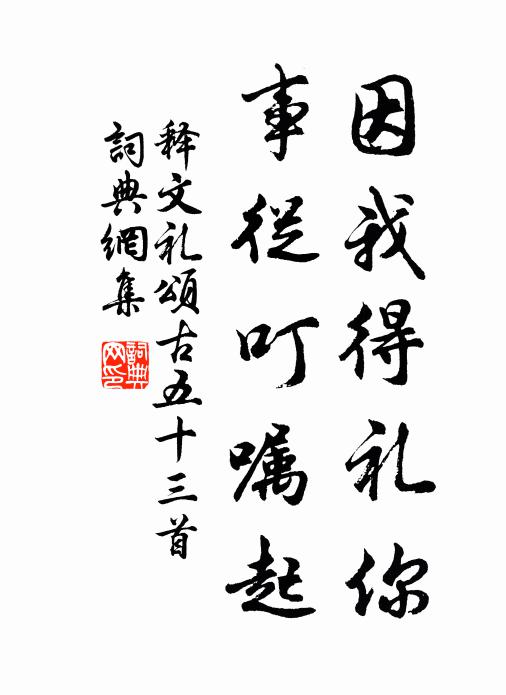 因我得礼你
事從叮嘱起
释文礼頌古五十三首
詞典網集
詞典
网印